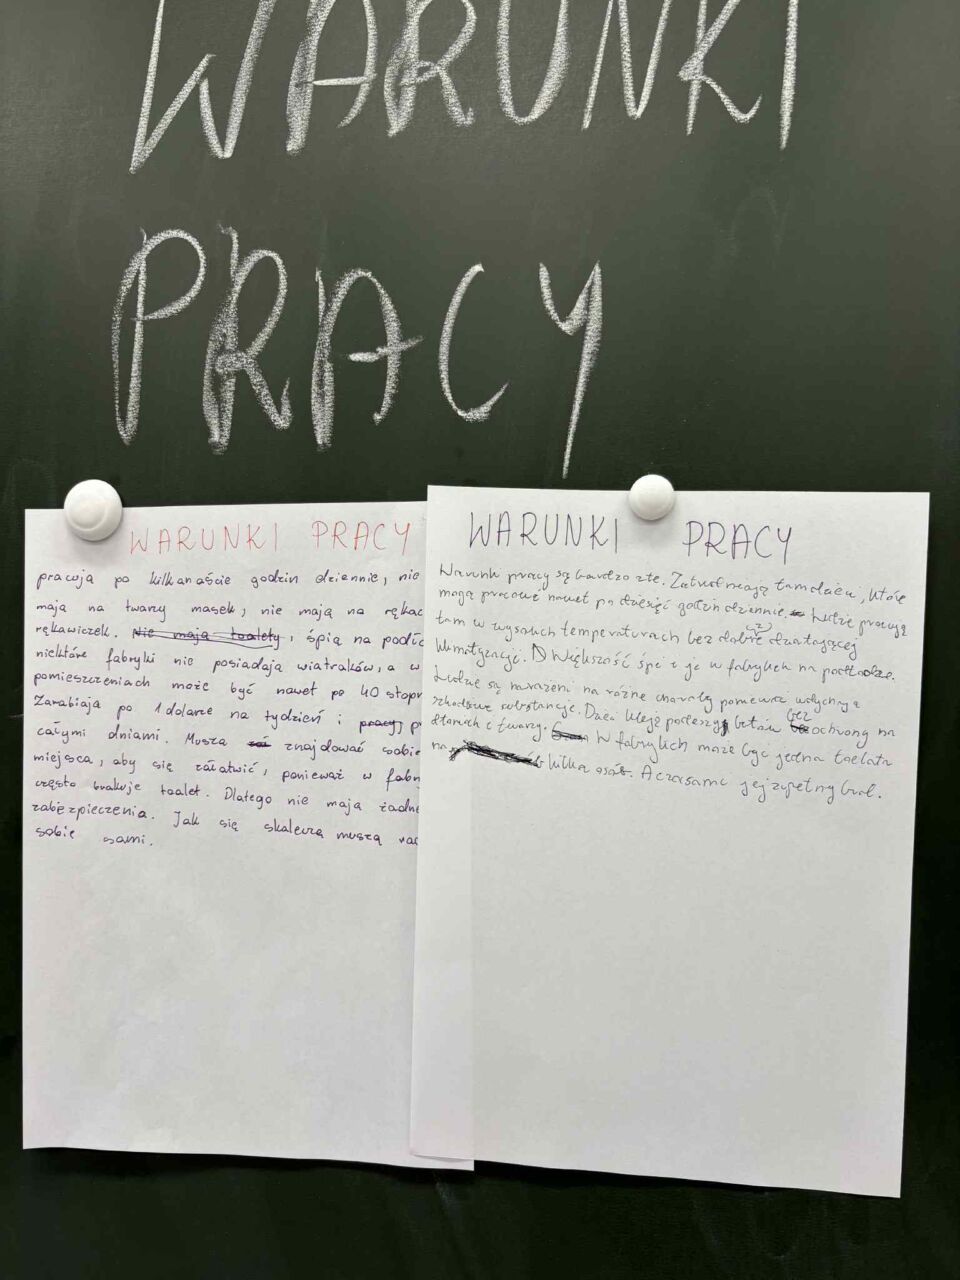 WARUNKI
PRACY
WARUNKI PRACY
pracują po kilkanaście godzin dziennie, nie
mają na twarzy masek, nie mają na rękac
rękawiczek. Nie mają toalety, śpią na podłc
niektóre fabryki nie posiadają wiatraków, a w
pomieszczeniach może być nawet po 40 stopn
Zarabiają po 1 dolarze na tydzień i pracują p
całymi dniami. Muszą znajdować sobie
miejsca, aby się załatwić, ponieważ w fabr
często brakuje toalet. Dlatego nie mają żadne
zabezpieczenia. Jak się skaleczą muszą rad
sobie sami.
WARUNKI PRACY
Warunk pracy są bardzo złe. Zatrudniają tam dzieci, które
mogą pracować nawet po dziesięć godzin dziennie. Ludzie pracują
tam w wysokich temperaturach bez dobrze działającej
klimatyzacji. Większość śpi i je w fabrykach na podłodze.
Ludzie są narażeni na różne choroby ponieważ wdychają
szkodliwe substancje. Dzieci kleją podeszwy butów bez ochrony na
dłoniach i twarzy. W fabrykach może być jedna toaleta
na kilka osób. A czasami jej zupełny brak.